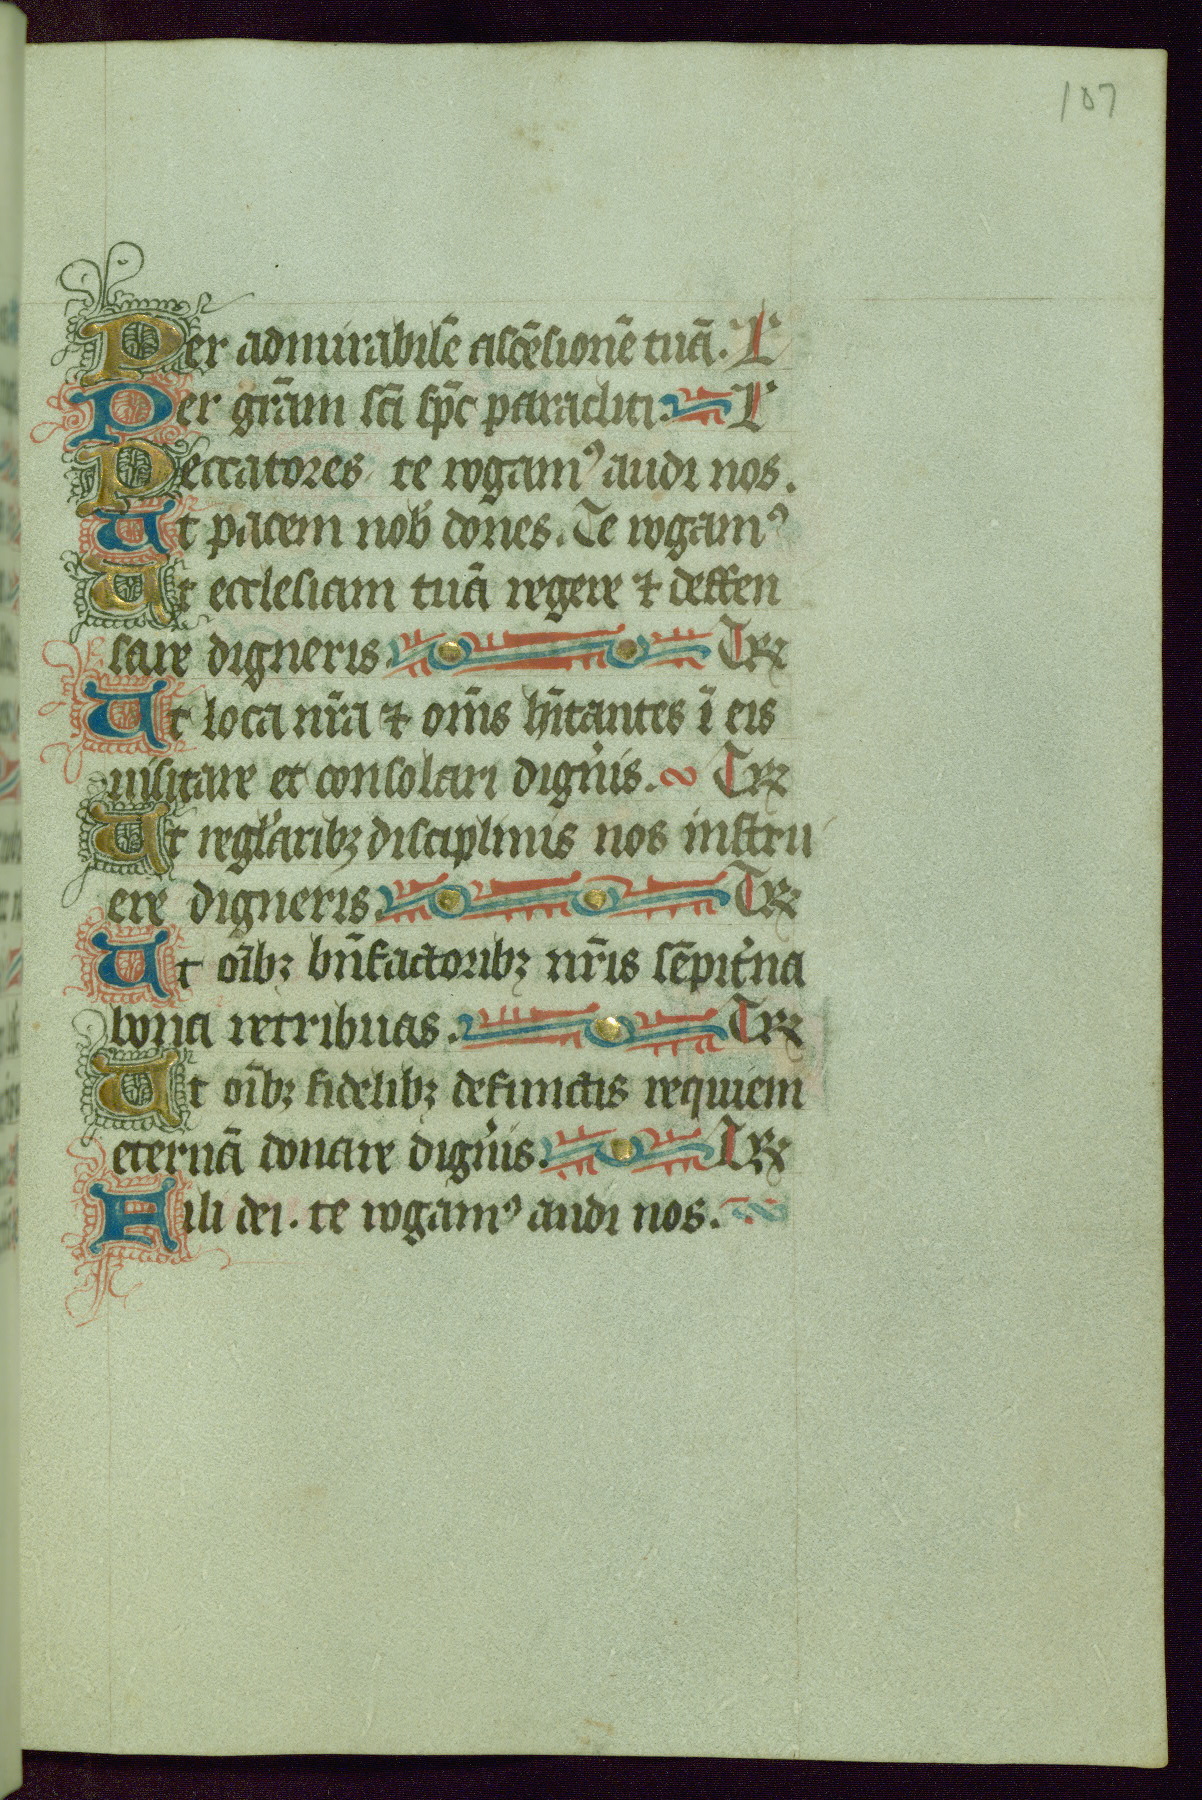 107
Per admirabilē ascēsionē tuā. L
Per grām sc̄i sp̄c paracliti. L
Peccatores te rogamꝰ audi nos.
Ut pacem nob̄ dones. Te rogamꝰ
Ut ecclesiam tuā regere ⁊ deffen
sare digneris. TR
Ut loca nr̄a ⁊ om̄s hītantes ī eis
uisitare et consolari dign̄is. TR
Ut regl̄aribꝫ disciplinis nos instru
ere digneris. TR
Ut oībꝫ bn̄factoribꝫ nr̄is sēpit̄na
bona retribuas. TR
Ut oībꝫ fidelibꝫ defunctis requiem
eternā donare dign̄is. TR
Fili dei. te rogamꝰ audi nos.